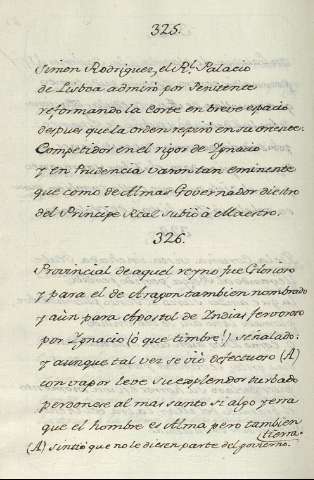 325.
Simon Rodriguez, el Rl. Palacio
de Lisboa admirò por Penitente
reformando la Corte en breve espacio
despues que la orden respirò en su oriente.
Competidor en el rigor de Ignacio
y en Prudencia varon tan eminente
que como de Almas Governador diestro
del Principe Real subiò à Maestro.
326.
Provincial de aquel reyno fue Glorioso
y para el de Aragon tambien nombrado
y aùn para Apostol de Indias fervoroso
por Ignacio (ò que timbre!) señalado:
y aunque tal vez se viò defectuoso (A)
con vapor leve su explendor turbado
perdonese al mas santo si algo yerra
que el hombre es Alma pero tambien
tierra.
(A) sintiò que no le diesen parte del govierno.